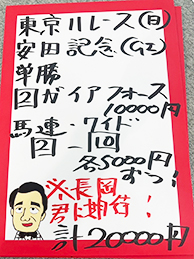 東京11レース(日)
安田記念(GI)
単勝
ガイアフォース
10000円
馬連・ワイド
各5000円
ずつ!
※長岡
君に期待!
計20000円